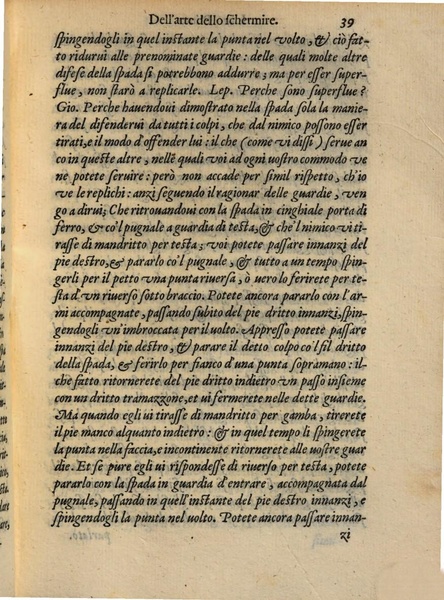 Dell'arte dello schermire. 39
spingendogli in quel instante la punta nel volto, & ciò fat-
to ridurui alle prenominate guardie: delle quali molte altre
difese della spada si potrebbono addurre; ma per esser super-
flue, non starò a replicarle. Lep. Perche sono superflue?
Gio. Perche hauendoui dimostrato nella spada sola la manie-
ra del difenderui da tutti i colpi, che dal nimico possono esser
tirati, e il modo d'offender lui: il che (come vi dissi) serue an
co in queste altre, nelle quali voi ad ogni uostro commodo ve
ne potete seruire: però non accade per simil rispetto, ch'io
ve le replichi: anzi seguendo il ragionar delle guardie, ven
go a dirui; Che ritrouandoui con la spada in cinghiale porta di
ferro, & co'l pugnale a guardia di testa, & che'l nimico vi ti-
rasse di mandritto per testa; voi potete passare innanzi del
pie destro, & pararlo co'l pugnale, & tutto a un tempo spin-
gerli per il petto vna punta riuersa, ò uero lo ferirete per te-
sta d'vn riuerso sotto braccio. Potete ancora pararlo con l'ar-
mi accompagnate, passando subito del pie dritto innanzi, spin-
gendogli vn'imbroccata per il volto. Appresso potete passare
innanzi del pie destro, & parare il detto colpo co'l fil dritto
della spada, & ferirlo per fianco d'una punta sopramano: il-
che fatto ritornerete del pie dritto indietro vn passo insieme
con un dritto tramazzone, et ui fermerete nelle dette guardie.
Ma quando egli ui tirasse di mandritto per gamba, tirerete
il pie manco alquanto indietro: & in quel tempo li spingerete
la punta nella faccia, e incontinente ritornerete alle uostre guar
die. Et se pure egli ui rispondesse di riuerso per testa, potete
pararlo con la spada in guardia d'entrare, accompagnata dal
pugnale, passando in quell'instante del pie destro innanzi, e
spingendogli la punta nel uolto. Potete ancora passare innan-
zi